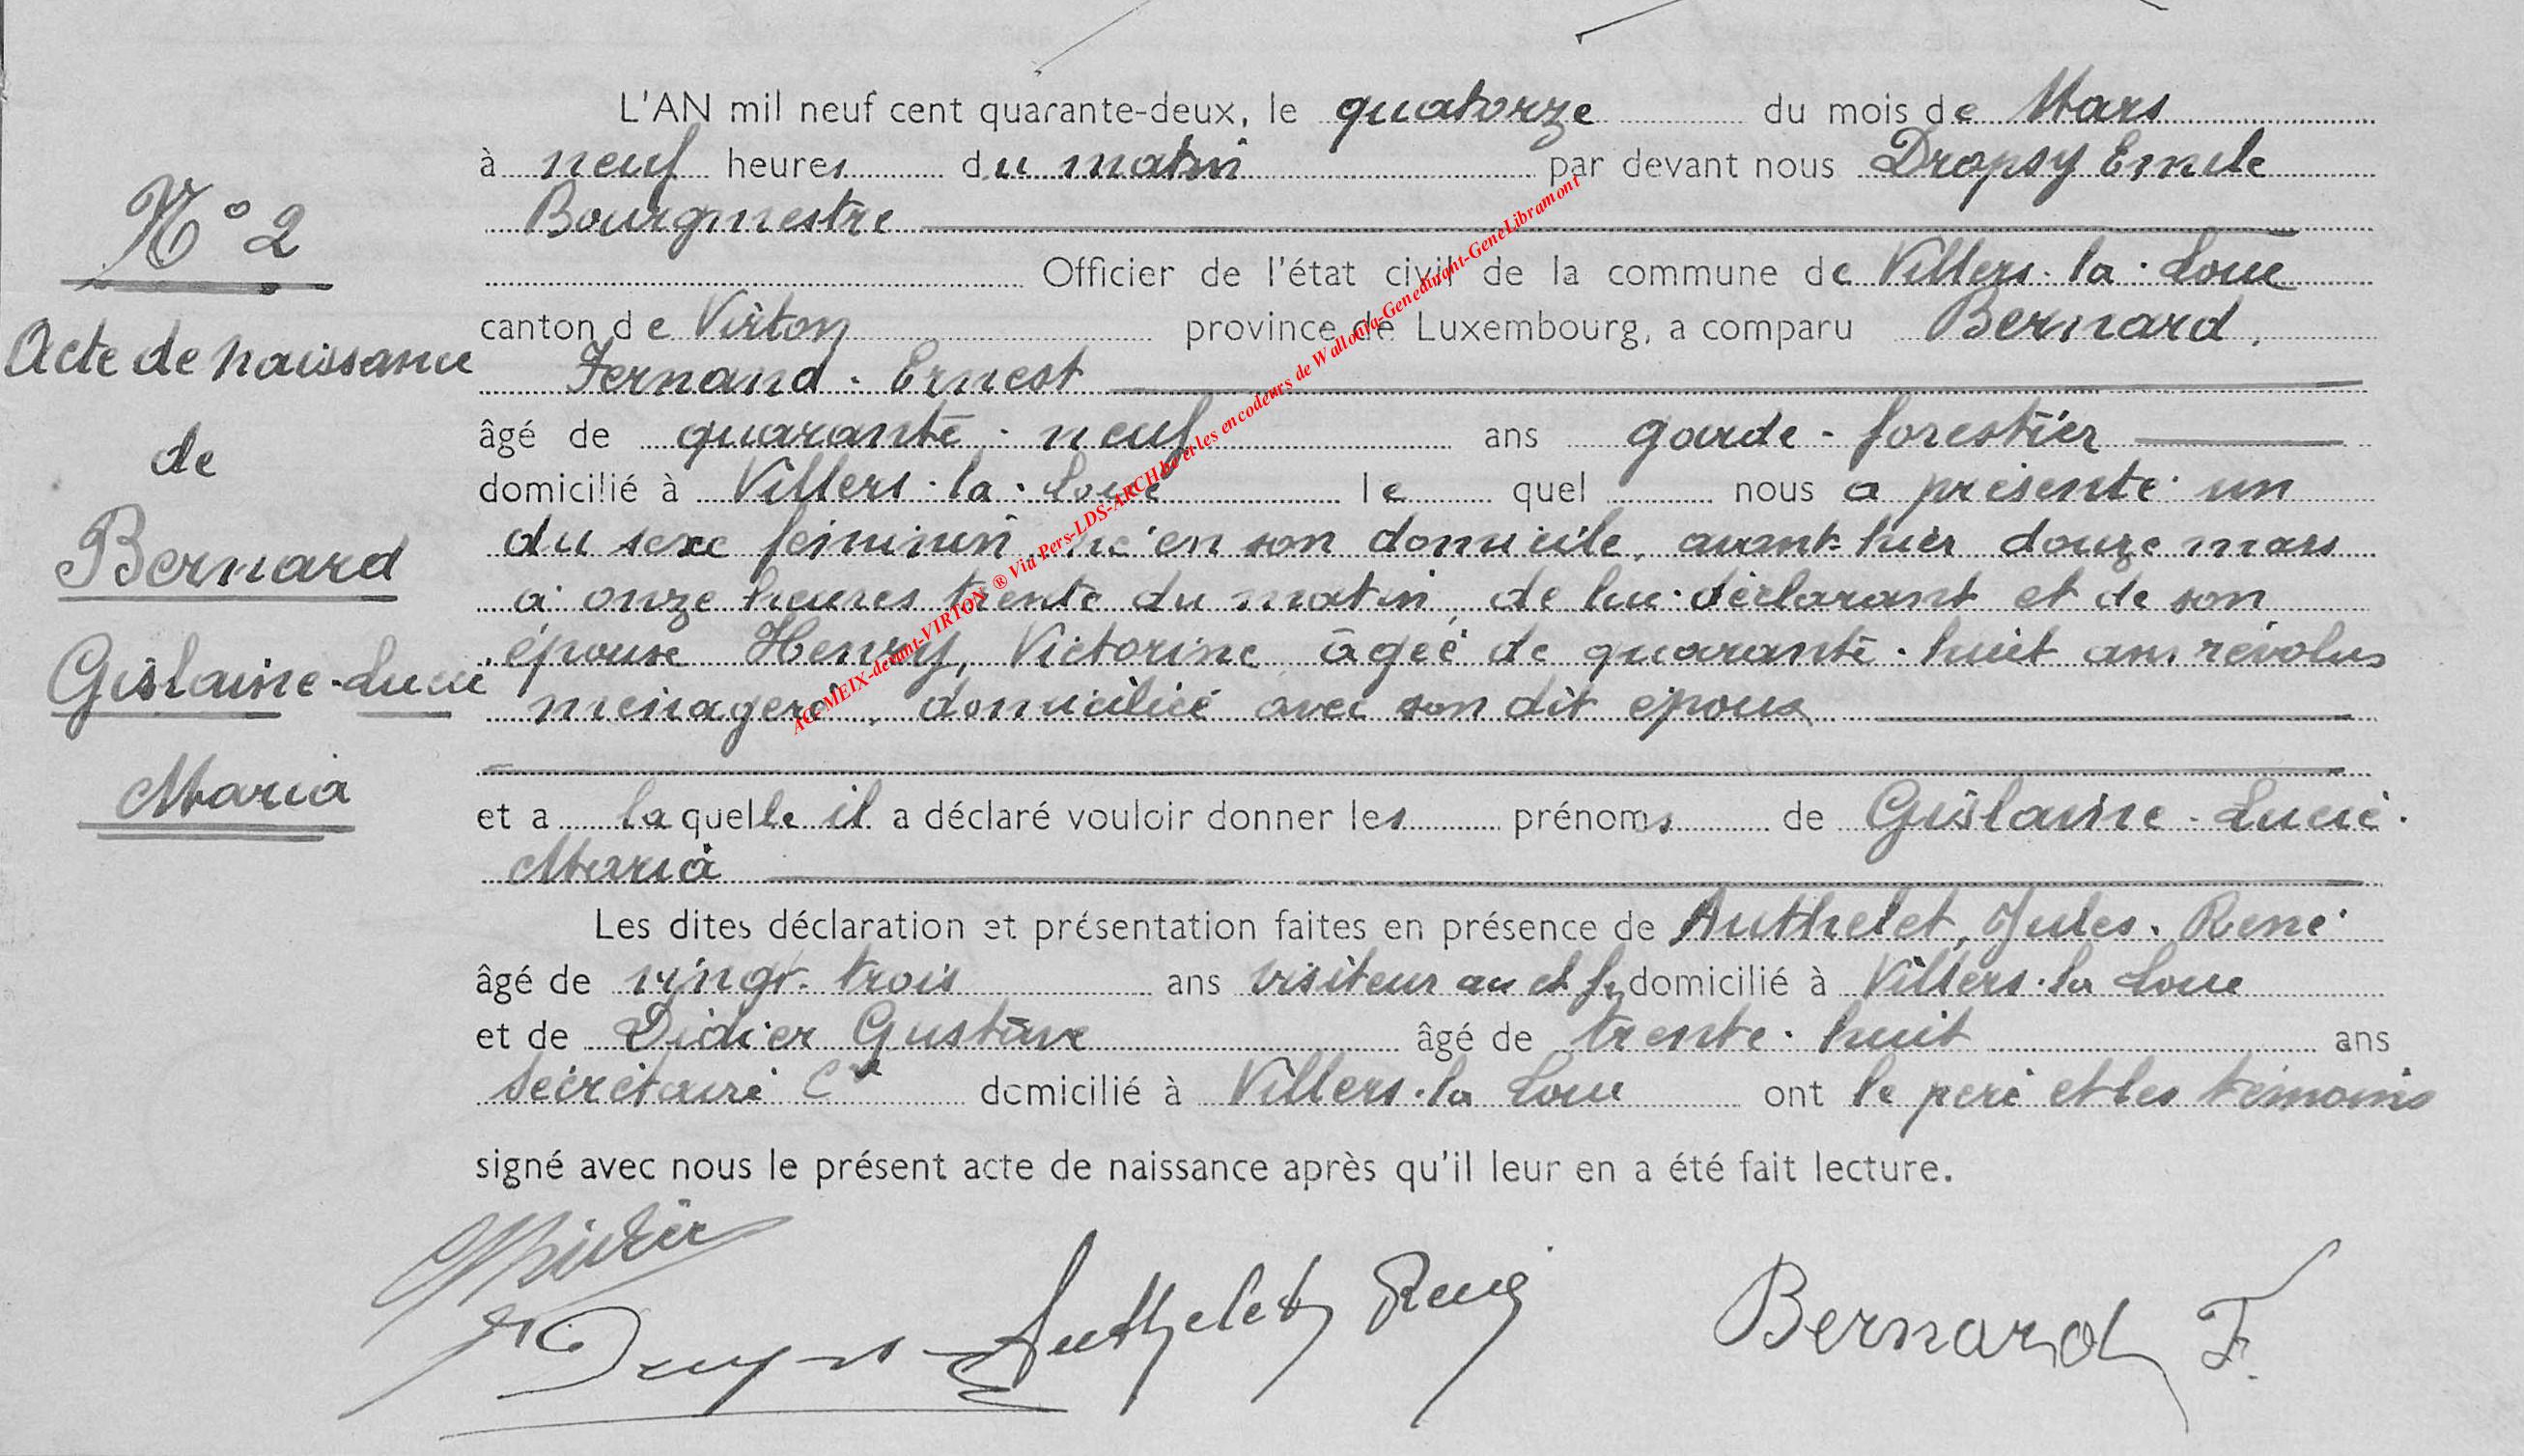 N° 2
Acte de naissance
de
Bernard
Gislaine-Lucie
Maria
L'AN mil neuf cent quarante-deux, le quatorze du mois de Mars
à neuf heures du matin par devant nous Dropsy Emile
Bourgmestre
Officier de l'état civil de la commune de Villers-la-Loue
canton de Virton province de Luxembourg, a comparu Bernard,
Fernand-Ernest
âgé de quarante-neuf ans garde-forestier
domicilié à Villers-la-Loue le quel nous a présenté un
du sexe féminin, né en son domicile, avant-hier douze mars
à onze heures trente du matin, de lui-déclarant et de son
épouse Henry, Victorine âgée de quarante-huit ans révolus
ménagère, domiciliée avec son dit époux
et a laquelle il a déclaré vouloir donner les prénoms de Gislaine-Lucie-
Maria
Les dites déclaration et présentation faites en présence de Authelet, Jules-René
âgé de vingt-trois ans visiteur au ch domicilié à Villers-la Loue
et de Didier Gustave âgé de trente-huit ans
secrétaire Cal domicilié à Villers-la Loue ont le père et les témoins
signé avec nous le présent acte de naissance après qu'il leur en a été fait lecture.
GDidier
Dropsy Authelet René Bernard F.
AC-MEIX-devant-VIRTON ® Via Pers-LDS-ARCH.be et les encodeurs de Wallonia-Genedinant-GeneLibramont